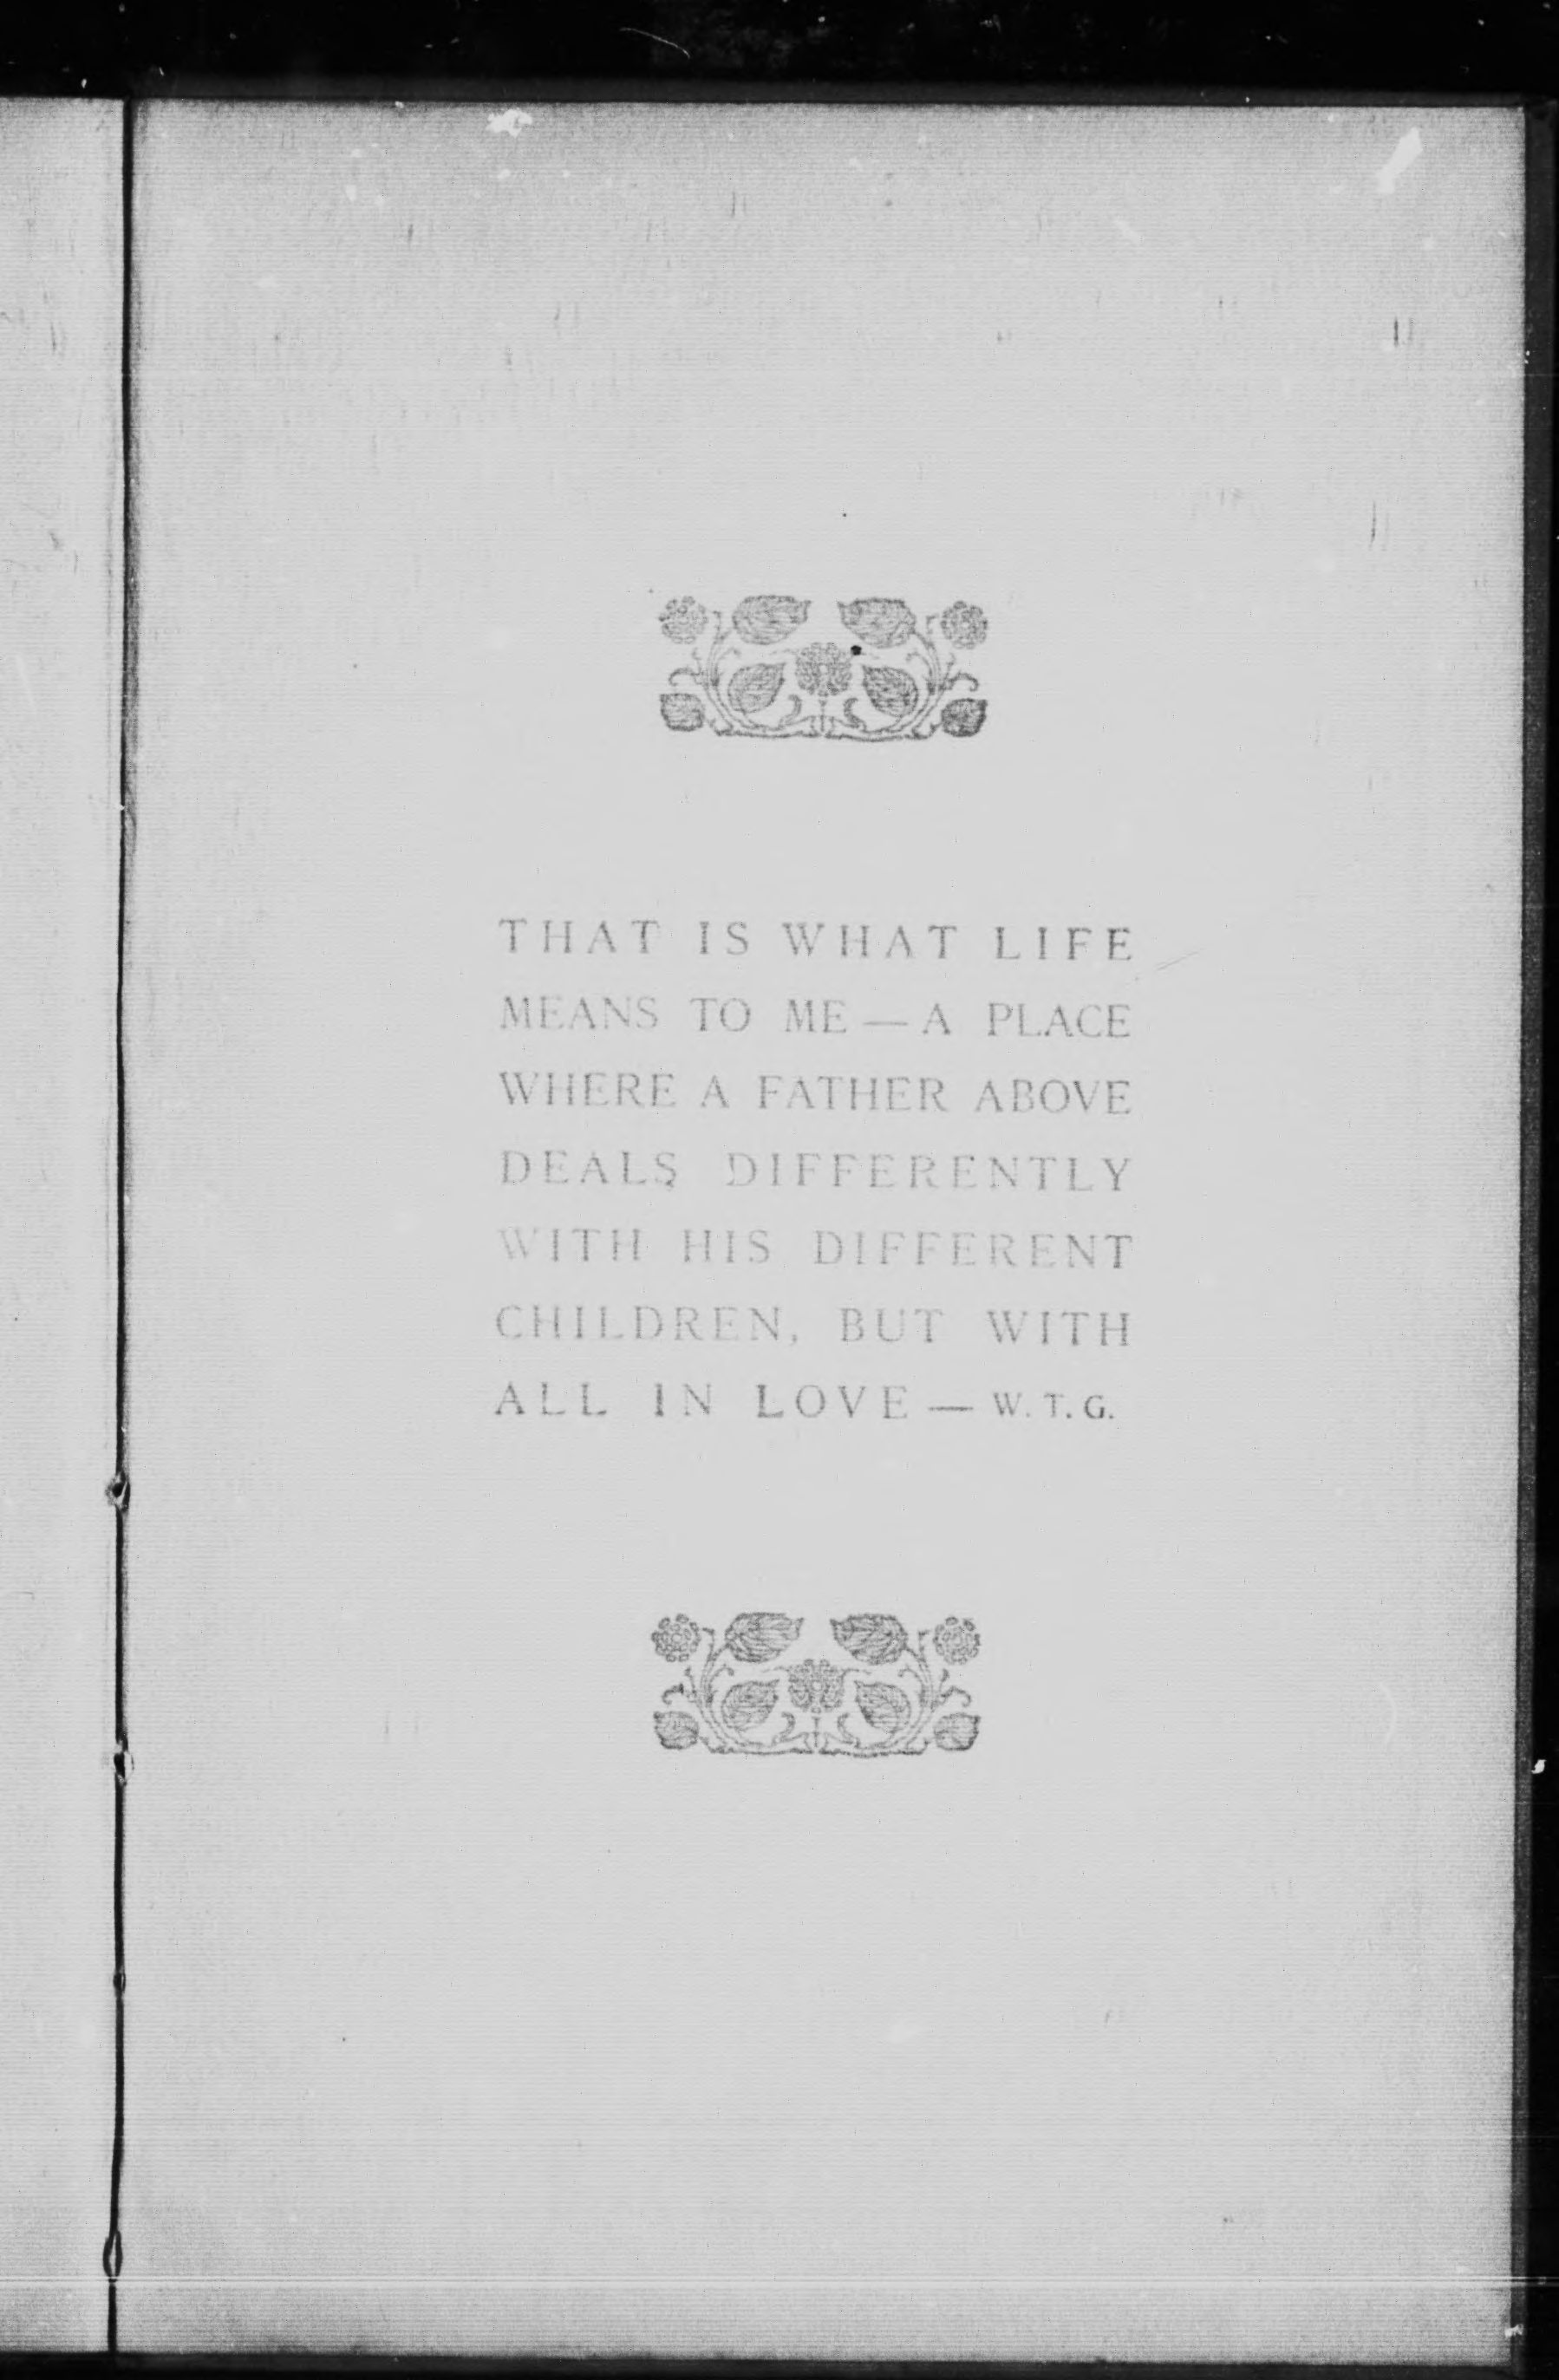 THAT IS WHAT LIFE
MEANS TO ME — A PLACE
WHERE A FATHER ABOVE
DEALS DIFFERENTLY
WITH HIS DIFFERENT
CHILDREN, BUT WITH
ALL IN LOVE — W. T. G.